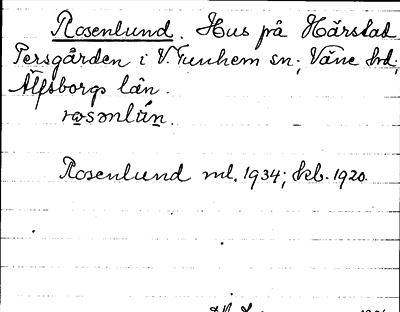 Rosenlund. Hus på Hårstad
Persgården i V. Tunhem sn; Väne hd;
Älfsborgs län.
Rosenlund ml. 1934; kb. 1920.